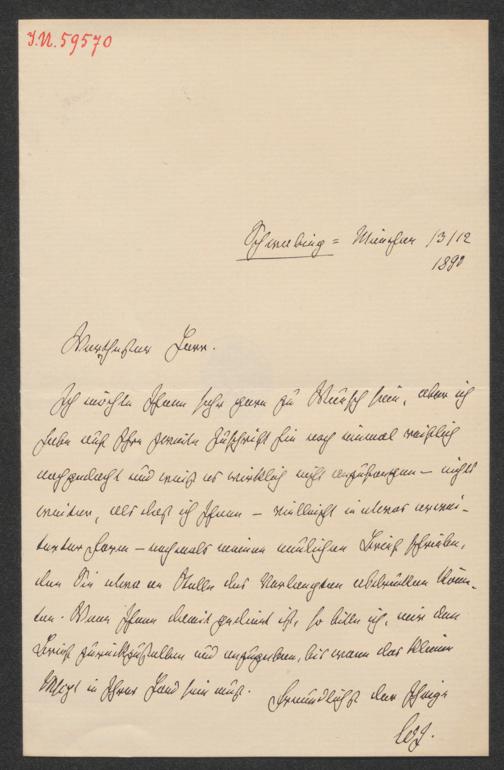 J.N. 59570
Schwabing = München 13/12
1890
Werthester Herr.
Ich möchte Ihnen sehr gern zu Wunsch sein, aber ich
habe auf Ihre zweite Zuschrift hin noch einmal reiflich
nachgedacht und weiß es wirklich nicht anzufangen – nichts
weiter, als daß ich Ihnen – vielleicht in etwas erwei-
terter Form – nochmals meinen neulichen Brief schriebe,
den Sie etwa an Stelle des Verlangten abdrucken könn-
ten. Wenn Ihnen damit gedient ist, so bitte ich, mir den
Brief zurückzustellen und anzugeben, bis wann das kleine
Mspt in Ihrer Hand sein muß. Freundlichst der Ihrige